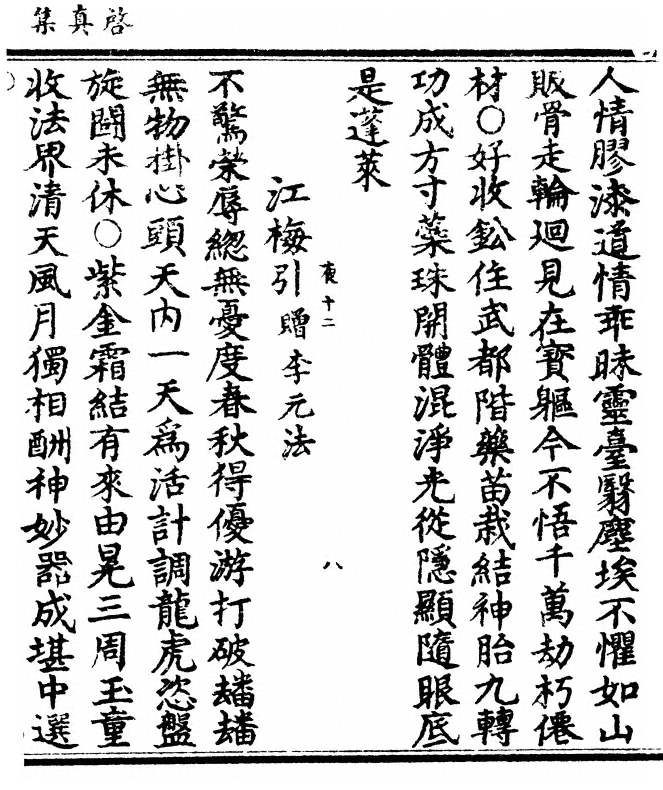 啓真集
人情膠漆道情乖昧靈臺翳塵埃不懼如山
販骨走輪廻見在寳軀今不悟千萬劫朽僊
材○好收鈆住武都階藥苗栽結神胎九轉
功成方寸蘂珠開體混淨光從隱顯隨眼底
是蓬萊
江梅引贈李元法
夜十二
八
不驚榮辱緫無憂度春秋得優游打破
無物掛心頭天内一天爲活計調龍虎恣盤
旋鬪未休○紫金霜結有來由晃三周玉童
收法界清天風月獨相酬神妙器成堪中選